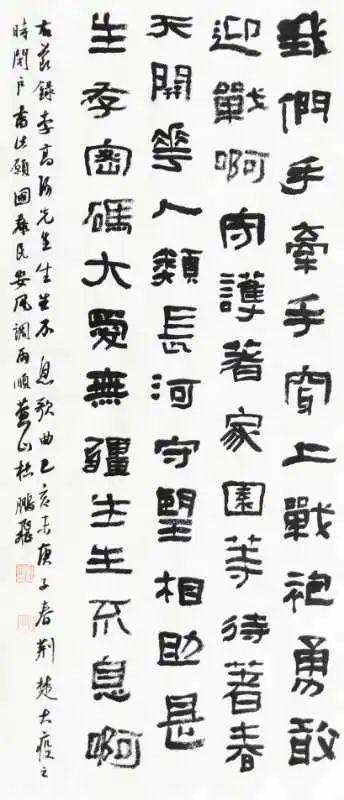 我們手牽手穿上戰袍勇敢
迎戰啊守護著家園等待著春
天開花人類長河守望相助是
生存密碼大愛無疆生生不息啊
右節錄李高先生生生不息歌曲己亥末庚子春荊楚大疫之
時閉戶書此願國泰民安風調雨順山鵬